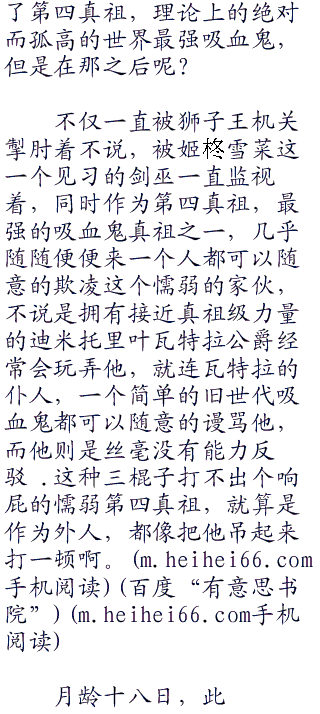 了第四真祖，理论上的绝对
而孤高的世界最强吸血鬼，
但是在那之后呢？
不仅一直被狮子王机关
掣肘着不说，被姬柊雪菜这
一个见习的剑巫一直监视
着，同时作为第四真祖，最
强的吸血鬼真祖之一，几乎
随随便便来一个人都可以随
意的欺凌这个懦弱的家伙，
不说是拥有接近真祖级力量
的迪米托里叶瓦特拉公爵经
常会玩弄他，就连瓦特拉的
仆人，一个简单的旧世代吸
血鬼都可以随意的谩骂他，
而他则是丝毫没有能力反
驳 .这种三棍子打不出个响
屁的懦弱第四真祖，就算是
作为外人，都像把他吊起来
打一顿啊。(m.heihei66.com
手机阅读)(百度“有意思书
院”)(m.heihei66.com手机
阅读)
月龄十八日，此